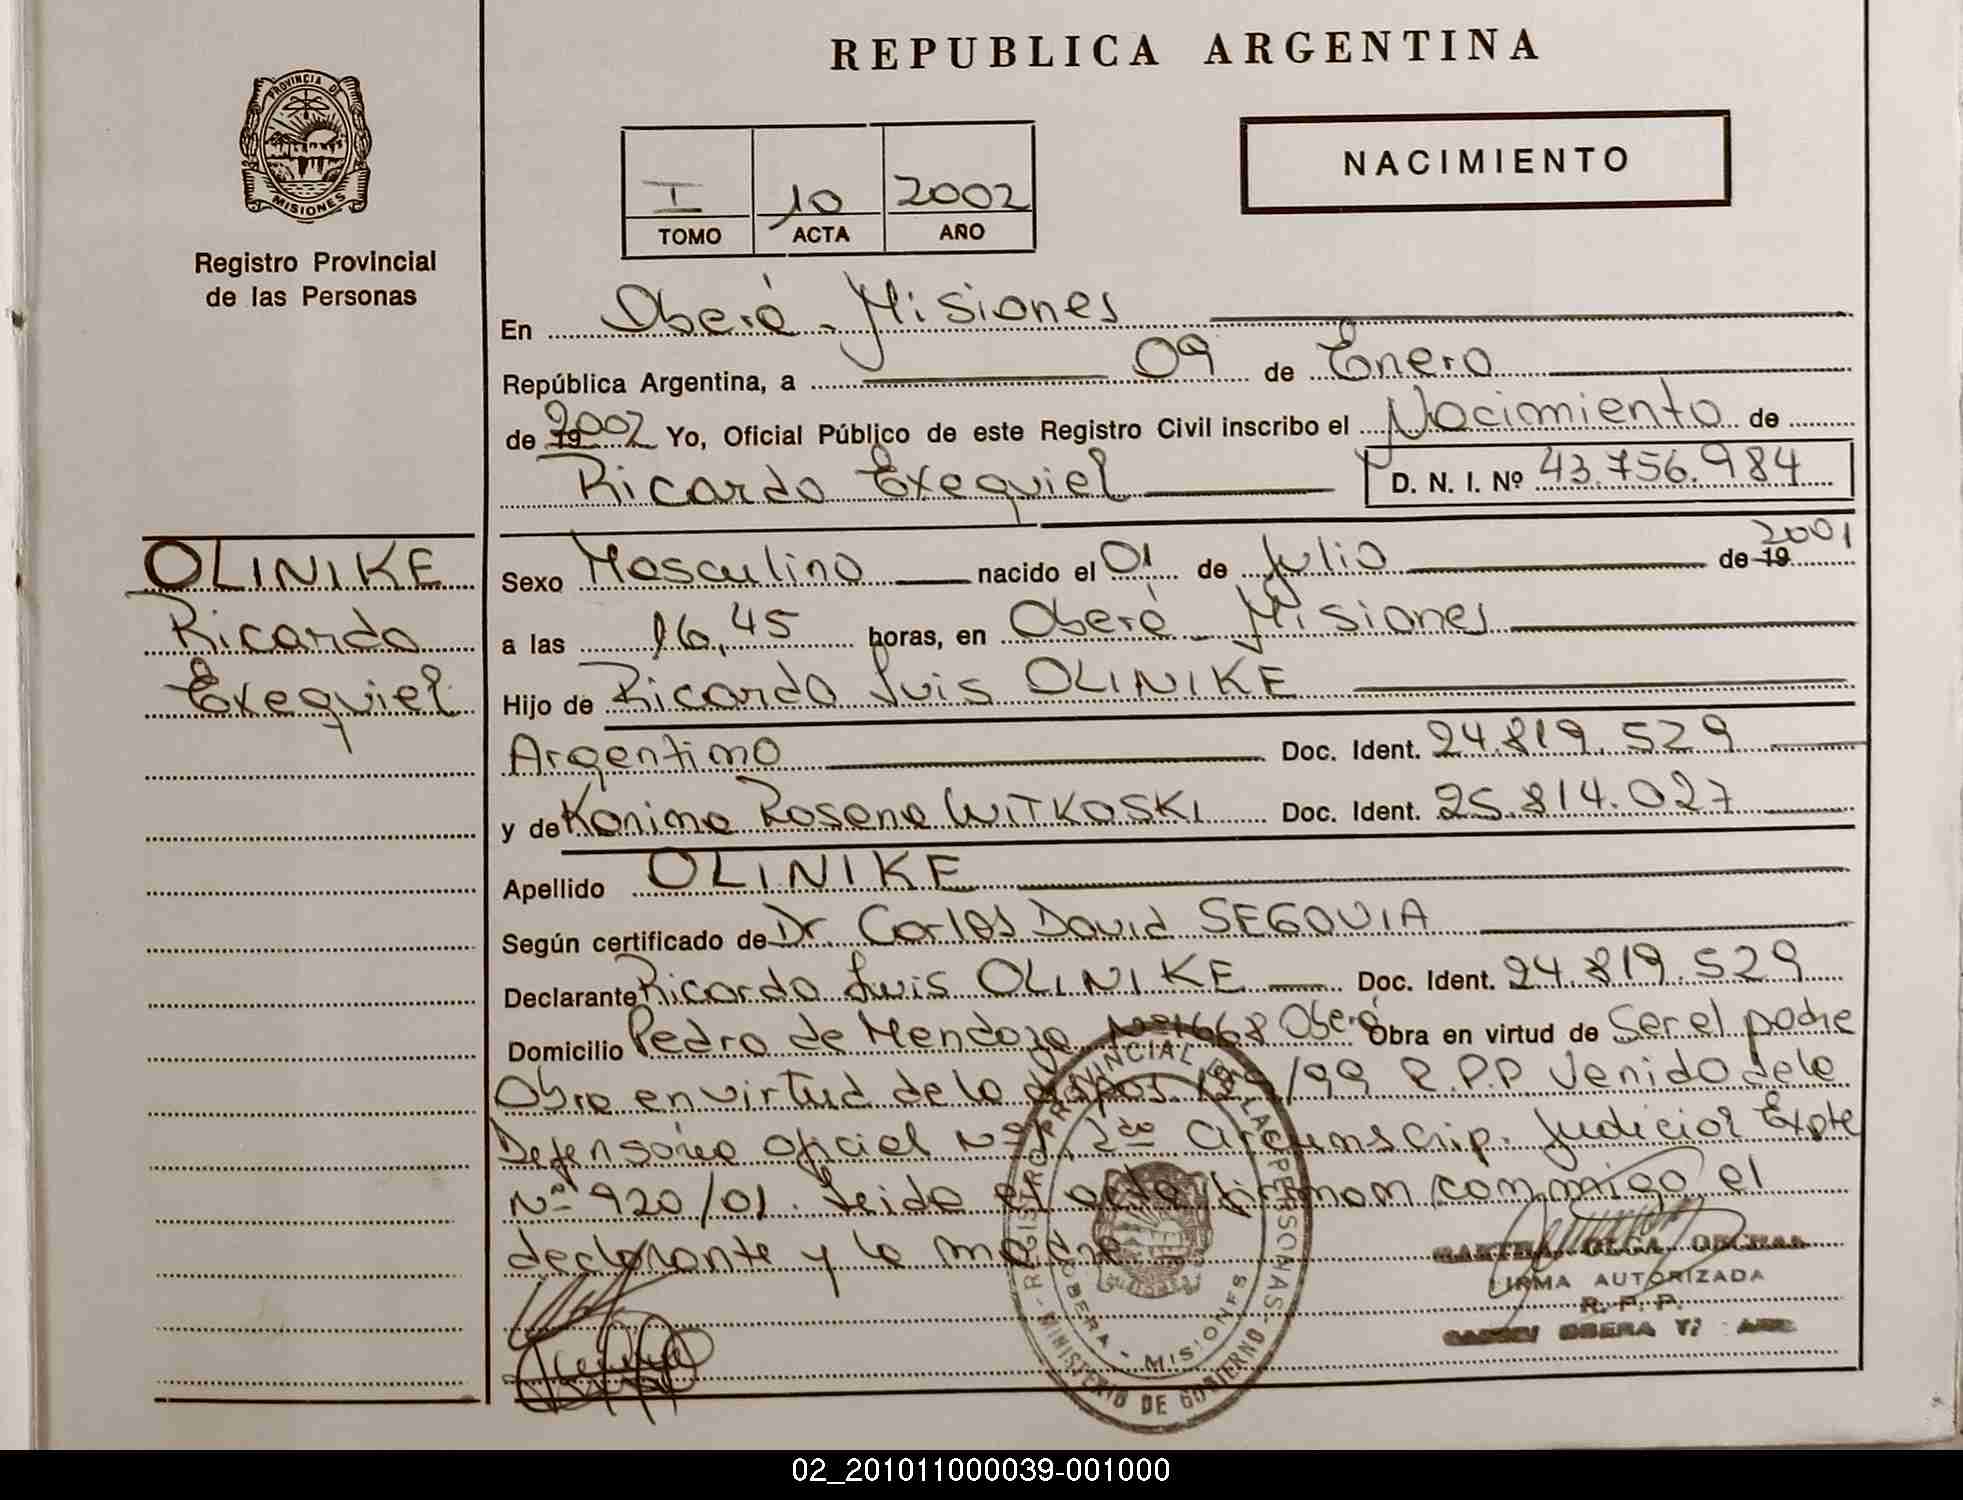 REPUBLICA ARGENTINA
PROVINCIA DE
MISIONES
Registro Provincial
de las Personas
I 10 2002
TOMO ACTA AÑO
NACIMIENTO
En Oberá - Misiones
República Argentina, a 09 de Enero
de 19 2002 Yo, Oficial Público de este Registro Civil inscribo el Nacimiento de
Ricardo Exequiel D. N. I. Nº 43.756.984
OLINIKE
Ricardo
Exequiel
Sexo Masculino nacido el 01 de Julio de 19 2001
a las 16,45 horas, en Oberá - Misiones
Hijo de Ricardo Luis OLINIKE
Argentino Doc. Ident. 24.819.529
y de Karina Rosana WITKOSKI Doc. Ident. 25.814.027
Apellido OLINIKE
Según certificado de Dr. Carlos David SEGOVIA
Declarante Ricardo Luis OLINIKE Doc. Ident. 24.819.529
Domicilio Pedro de Mendoza Nº 1668 Oberá Obra en virtud de Ser el padre
Obra en virtud de la dispos. /99 R.P.P Venido de la
Defensoría oficial Nº 1, 2da Circunscrip. Judicial Expte
Nº 920/01. Leida el acta firman conmigo, el
declarante y la madre
REGISTRO PROVINCIAL DE LAS PERSONAS
OBERA - MISIONES
MINISTERIO DE GOBIERNO
FIRMA AUTORIZADA
R. P. P.
OBERA
02_201011000039-001000